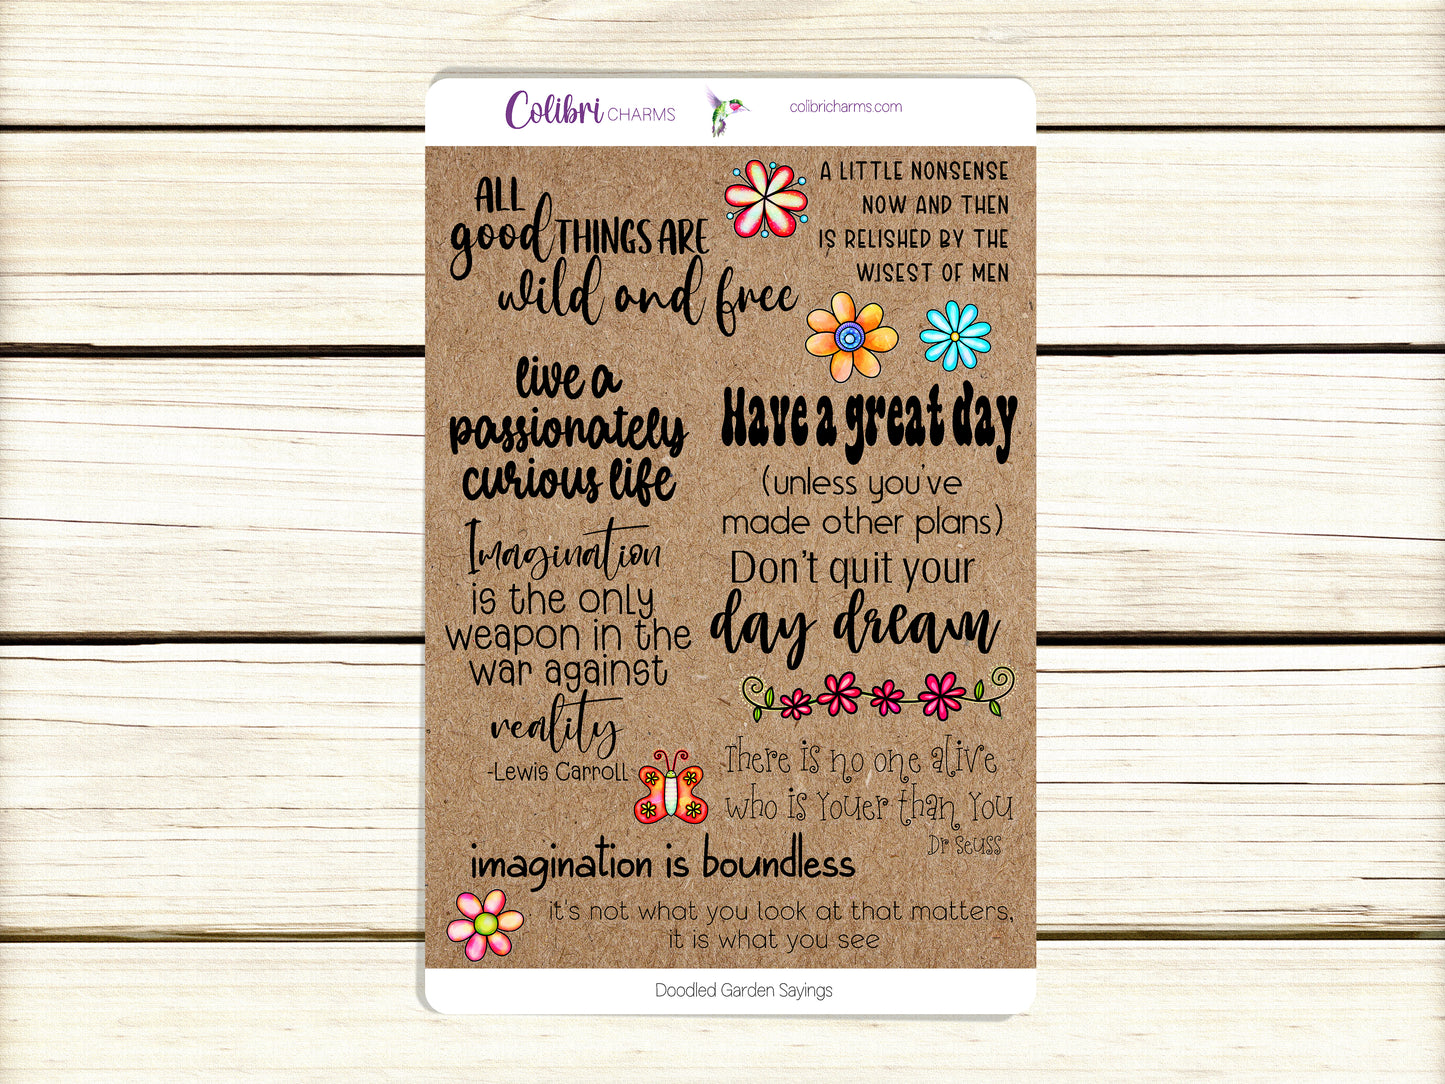 Colibri CHARMS
colibricharms.com
ALL
good THINGS ARE
wild and free
A LITTLE NONSENSE
NOW AND THEN
IS RELISHED BY THE
WISEST OF MEN
live a
passionately
curious life
Have a great day
(unless you've
made other plans)
Imagination
is the only
weapon in the
war against
reality
-Lewis Carroll
Don't quit your
day dream
There is no one alive
who is Youer than You
Dr Seuss
imagination is boundless
it's not what you look at that matters,
it is what you see
Doodled Garden Sayings